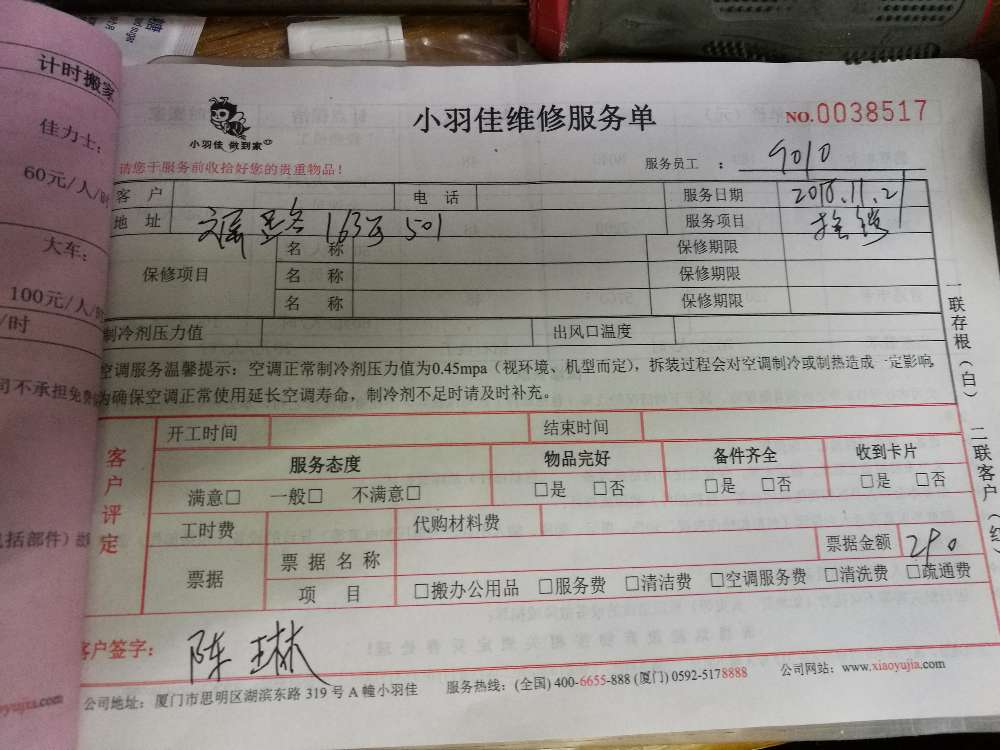 计时搬家
佳力士:
60元/人/时
大车:
100元/人/
/时
司不承担免费
包括部件)
oyujia.com
小羽佳 做到家
小羽佳维修服务单
NO.0038517
请您于服务前收拾好您的贵重物品!
服务员工 : 9010
客 户 电 话 服务日期 2018.11.21
地 址 163号 501 服务项目
保修项目 名 称 保修期限
名 称 保修期限
名 称 保修期限
制冷剂压力值 出风口温度
空调服务温馨提示:空调正常制冷剂压力值为0.45mpa(视环境、机型而定),拆装过程会对空调制冷或制热造成一定影响,
为确保空调正常使用延长空调寿命,制冷剂不足时请及时补充。
客户评定
开工时间 结束时间
服务态度 物品完好 备件齐全 收到卡片
满意□ 一般□ 不满意□ □是 □否 □是 □否 □是 □否
工时费 代购材料费
票据 票据名称 票据金额 290
项 目 □搬办公用品 □服务费 □清洁费 □空调服务费 □清洗费 □疏通费
客户签字: 陈琳
公司地址:厦门市思明区湖滨东路 319 号 A 幢小羽佳 服务热线:(全国) 400-6655-888 (厦门) 0592-5178888 公司网站:www.xiaoyujia.com
一联存根(白) 二联客户(红)